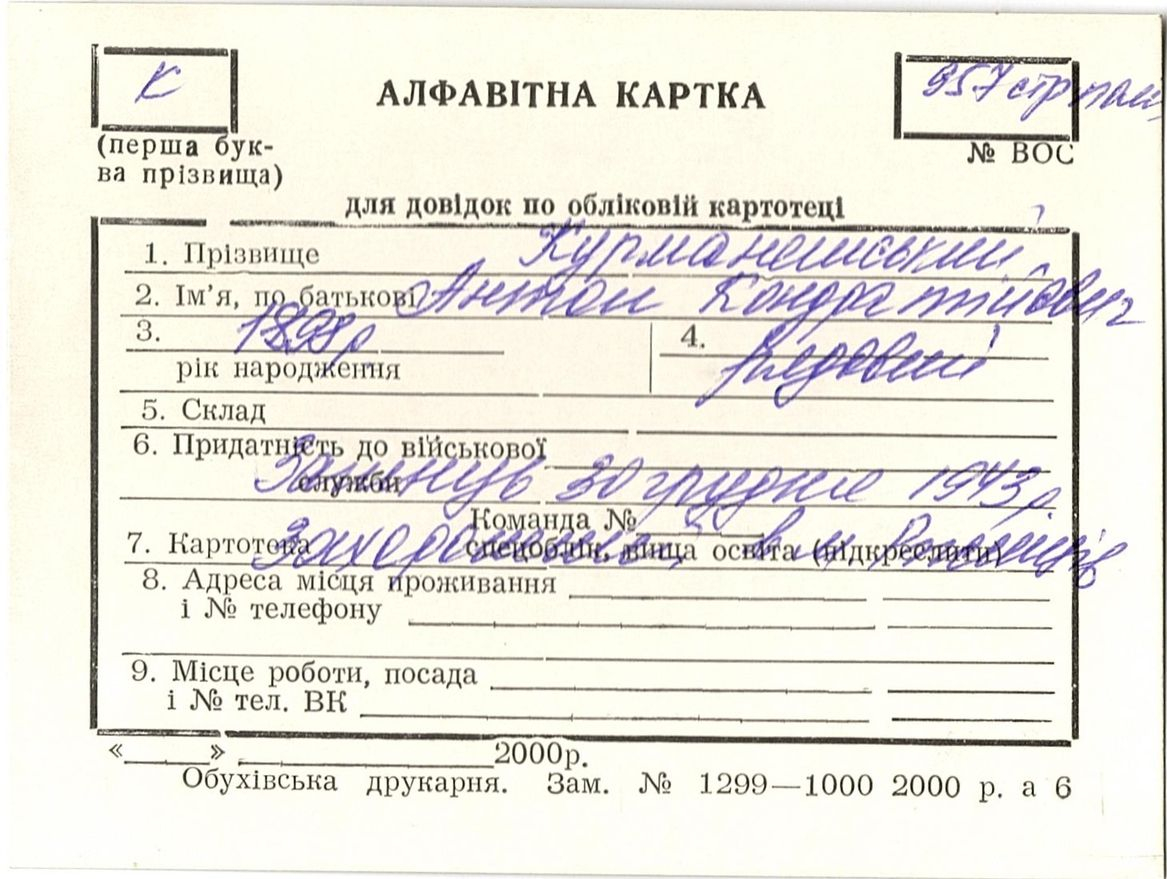 К
АЛФАВІТНА КАРТКА
957 стр
(перша бук-
ва прізвища)
№ ВОС
для довідок по обліковій картотеці
1. Прізвище
2. Ім’я, по батькові Антон Кондратійович
3. 1898р
рік народження
4. рядовий
5. Склад
6. Придатність до військової
служби
Загинув 30 грудня 1943р.
Команда №
7. Картотека спецоблік, вища освіта (підкреслити)
8. Адреса місця проживання
і № телефону
9. Місце роботи, посада
і № тел. ВК
« » 2000р.
Обухівська друкарня. Зам. № 1299—1000 2000 р. а 6